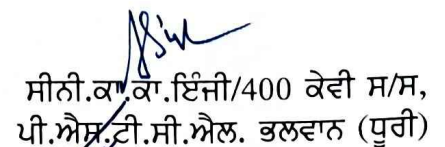 ਸੀਨੀ.ਕਾ.ਕਾ.ਇੰਜੀ/400 ਕੇਵੀ ਸ/ਸ,
ਪੀ.ਐਸ.ਟੀ.ਸੀ.ਐਲ. ਭਲਵਾਨ (ਧੂਰੀ)